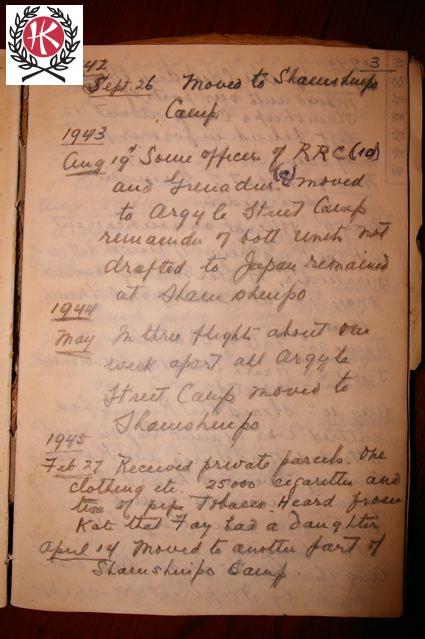 HK
1942 3
Sept. 26 Moved to Shamshuipo
Camp
1943
Aug 19th Some officers of RRC (10)
and Grenadiers (9) moved
to Argyle Street Camp
remainder of both units not
drafted to Japan remained
at Shamshuipo
1944
May In three flights about one
week apart all Argyle
Street Camp moved to
Shamshuipo
1945
Feb. 27 Received private parcels. One
clothing etc. 25000 cigarettes and
two of pipe Tobacco. Heard from
Kat that Fay had a daughter
April 14 Moved to another part of
Shamshuipo Camp.